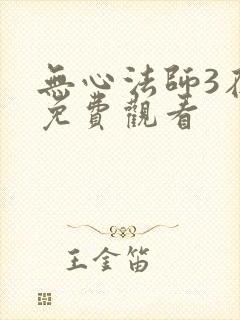 無心法師3在
免費觀看
王金笛